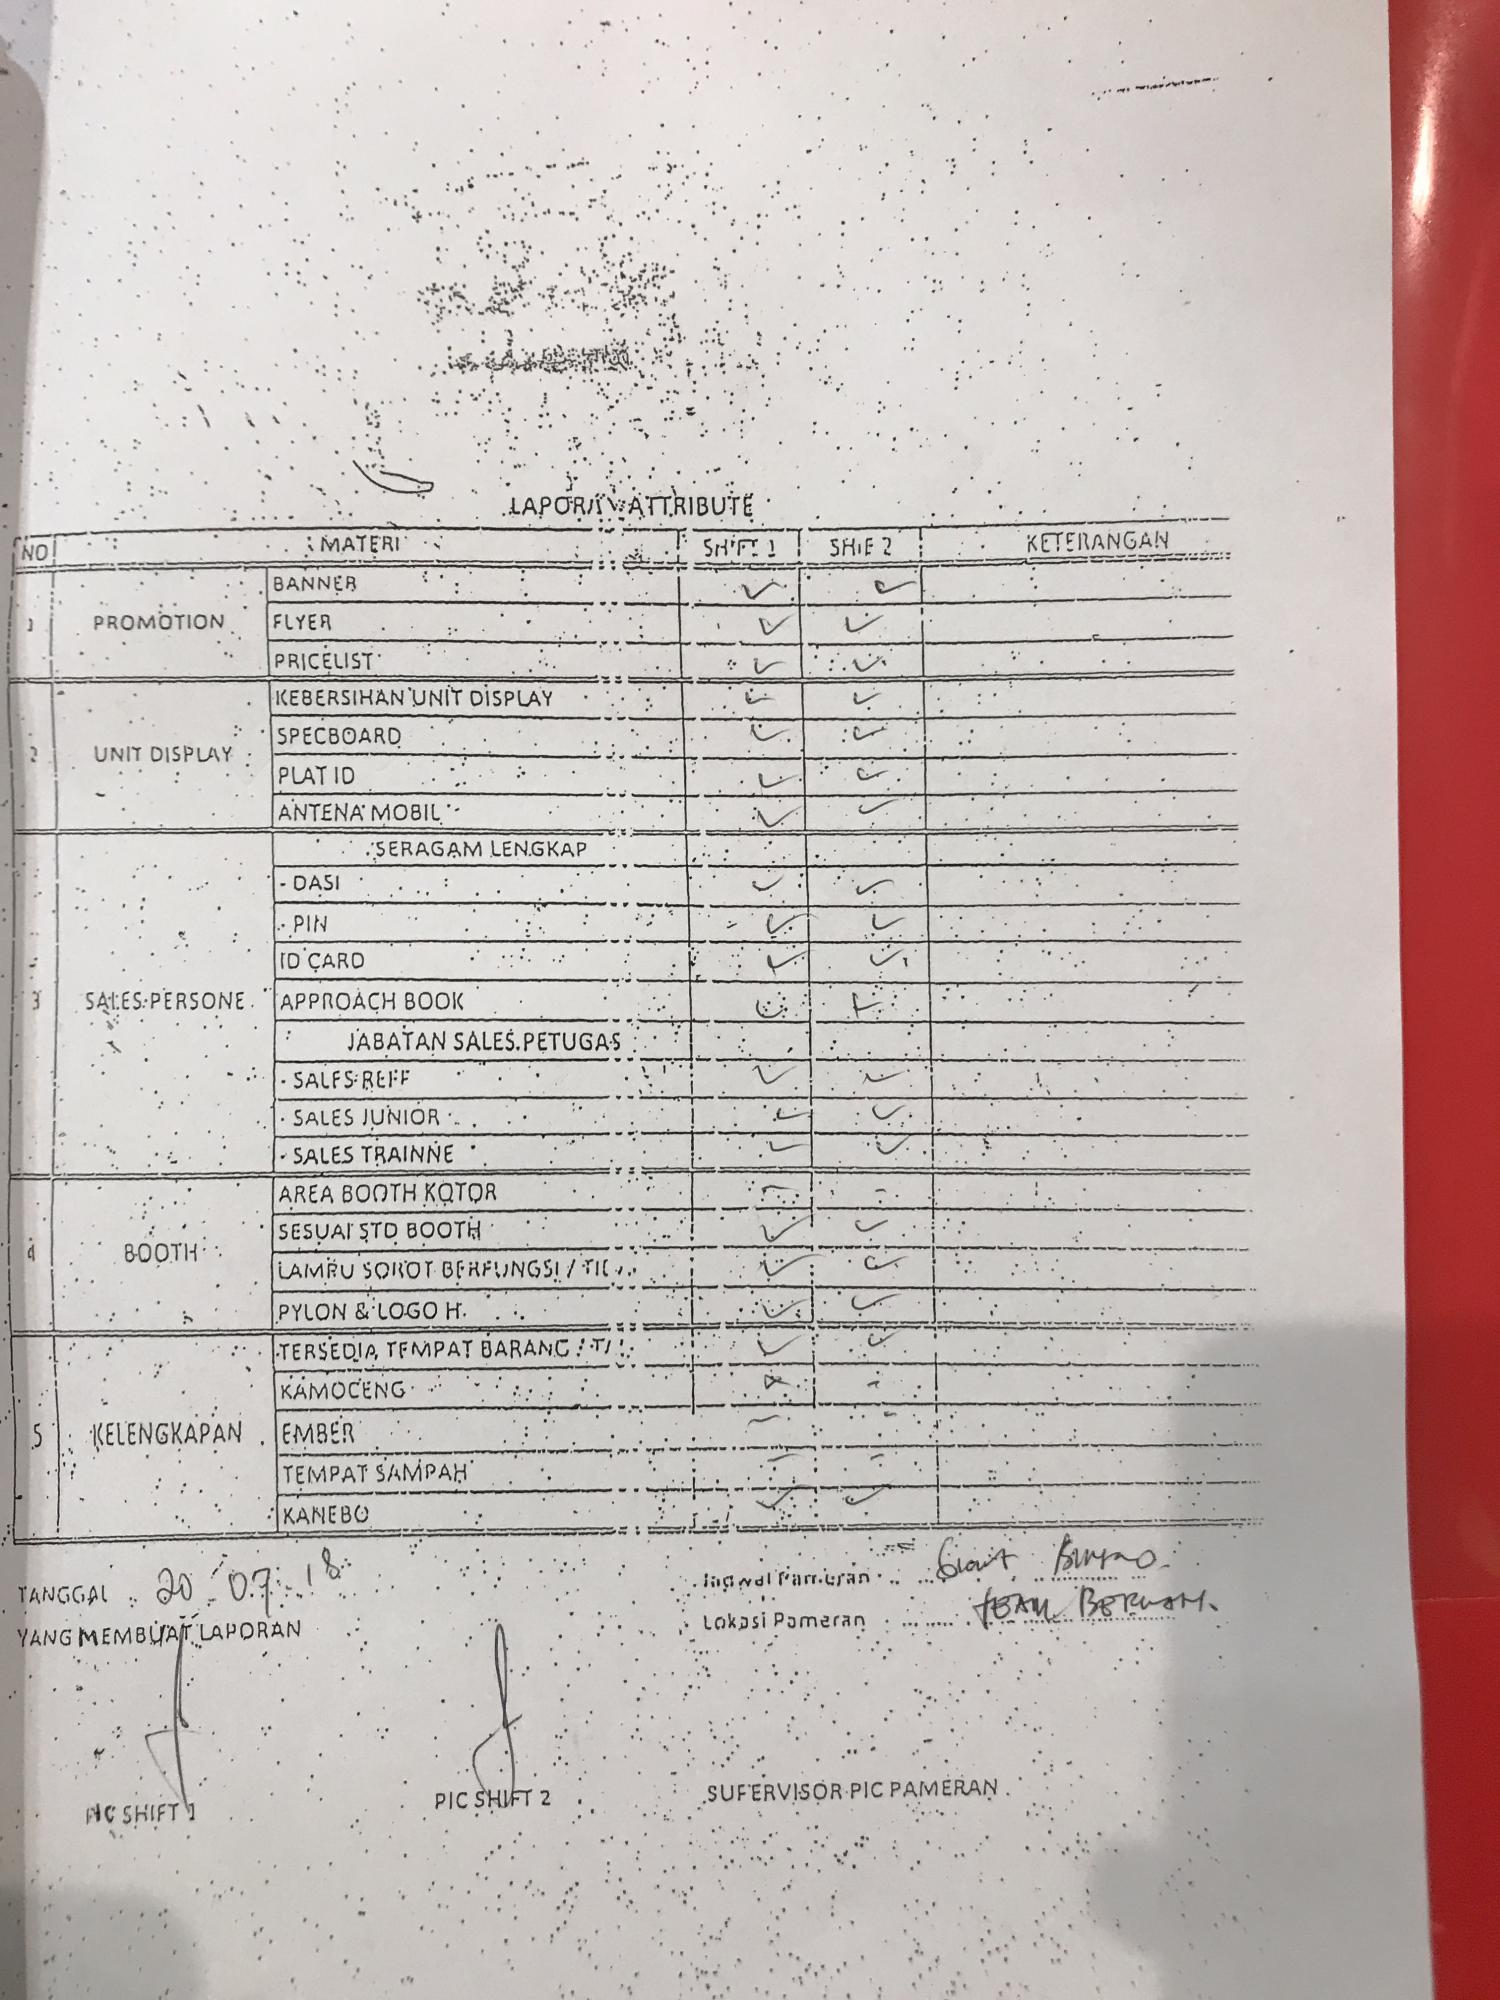 LAPORAN ATTRIBUTE
NO MATERI SHIFT 1 SHIF 2 KETERANGAN
1 PROMOTION
BANNER ✓ ✓
FLYER ✓ ✓
PRICELIST ✓ ✓
2 UNIT DISPLAY
KEBERSIHAN UNIT DISPLAY ✓ ✓
SPECBOARD ✓ ✓
PLAT ID ✓ ✓
ANTENA MOBIL ✓ ✓
3 SALES PERSONE
SERAGAM LENGKAP
- DASI ✓ ✓
- PIN ✓ ✓
ID CARD ✓ ✓
APPROACH BOOK ✓ ✓
JABATAN SALES PETUGAS
- SALES REFF ✓ ✓
- SALES JUNIOR ✓ ✓
- SALES TRAINNE ✓ ✓
4 BOOTH
AREA BOOTH KOTOR - -
SESUAI STD BOOTH ✓ ✓
LAMPU SOROT BERFUNGSI / ✓ ✓
PYLON & LOGO H ✓ ✓
5 KELENGKAPAN
TERSEDIA TEMPAT BARANG / ✓ ✓
KAMOCENG -
EMBER - -
TEMPAT SAMPAH - -
KANEBO ✓ ✓
TANGGAL : 20 07 18
YANG MEMBUAT LAPORAN
Jadwal Pameran
Lokasi Pameran
PIC SHIFT 1 PIC SHIFT 2 SUPERVISOR PIC PAMERAN